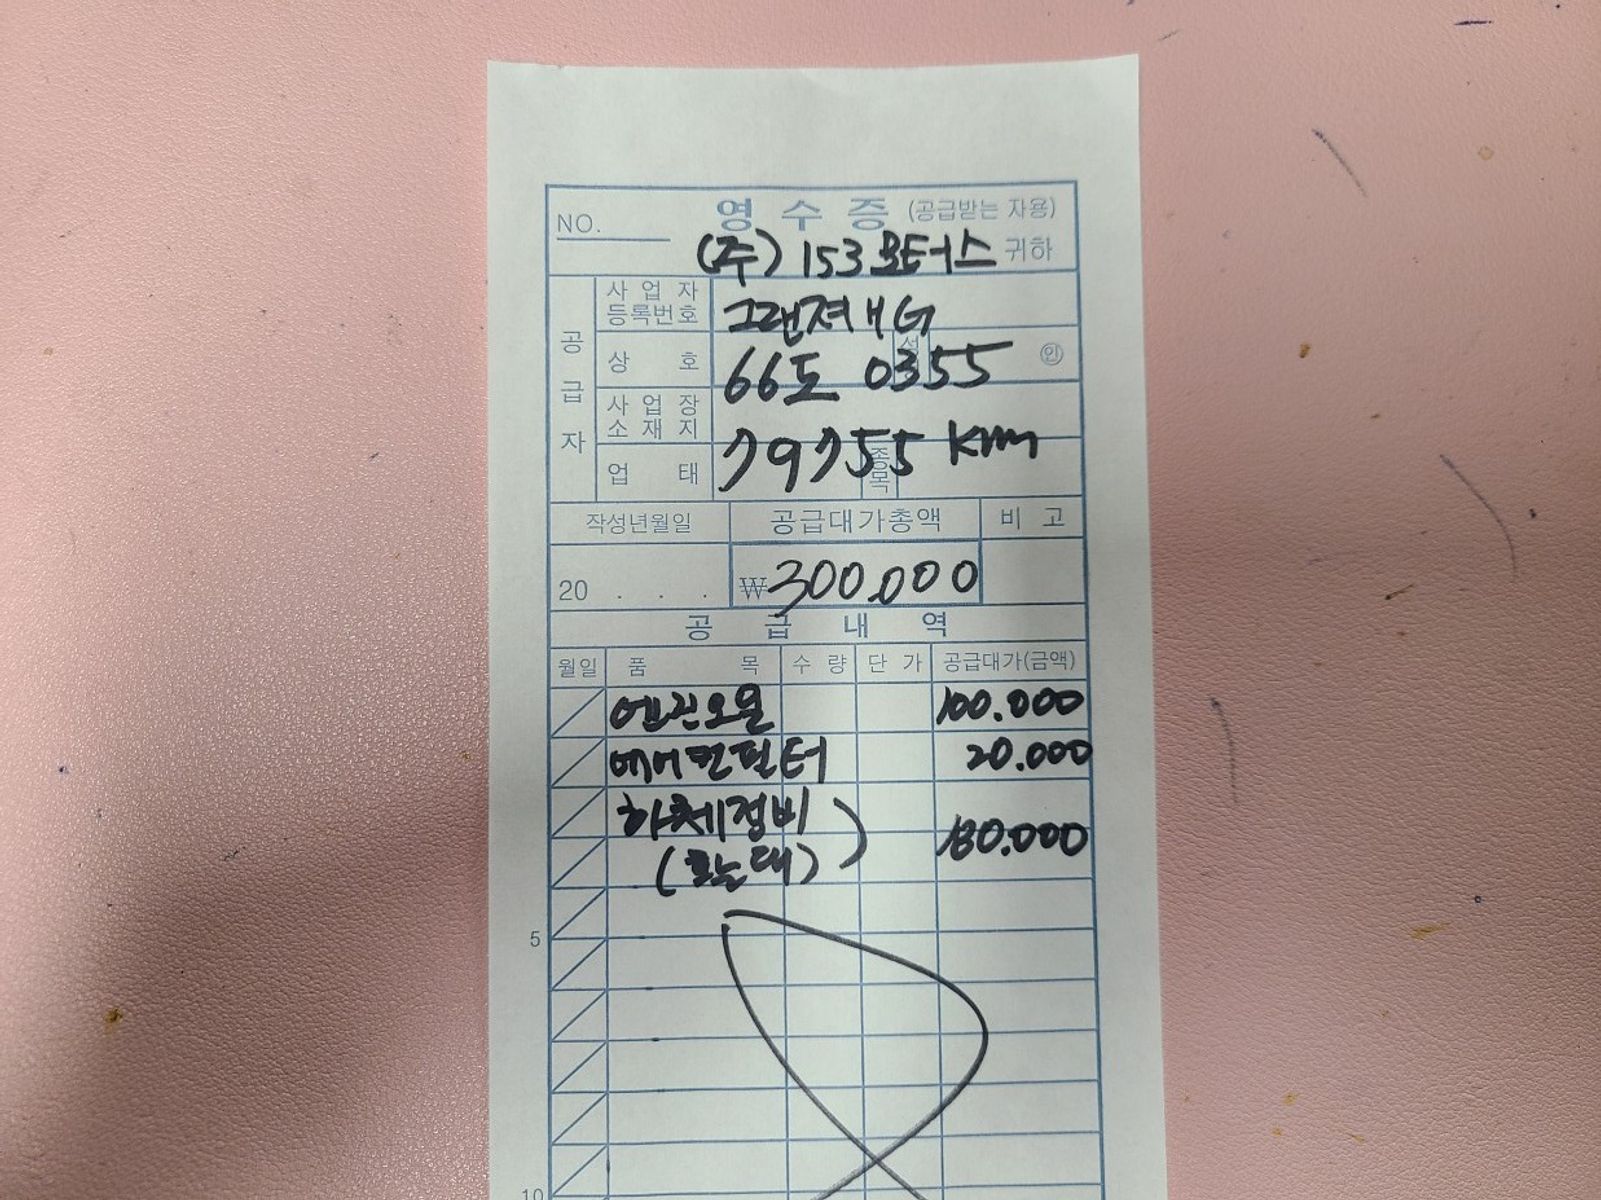 NO. 영 수 증 (공급받는 자용)
(주) 153모터스 귀하
공급자
사업자등록번호 그랜져HG
상 호 66도 0355 성 ㊞
사업장소재지
업 태 79755 km 종목
작성년월일 공급대가총액 비 고
20 . . . ₩300.000
공 급 내 역
월일 품 목 수 량 단 가 공급대가(금액)
엔진오일 100.000
에어컨필터 20.000
하체정비
(로온대) 180.000
5
10